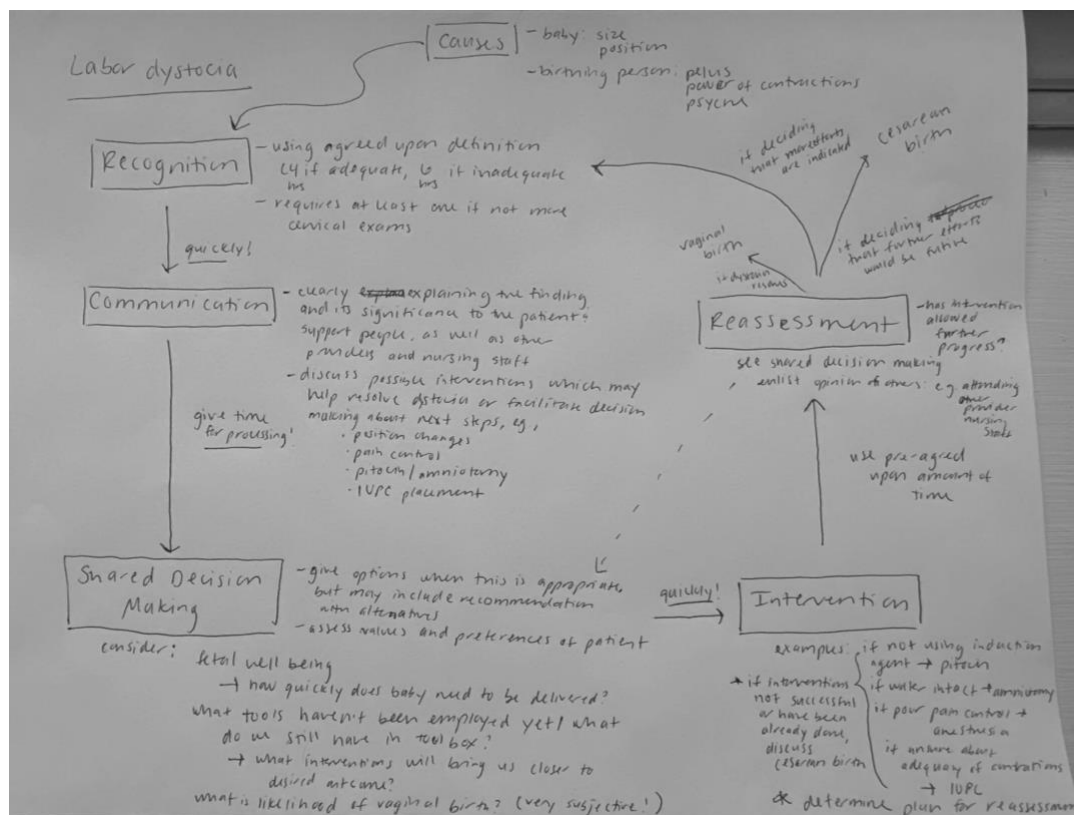 Labor dystocia
Causes
- baby: size
position
- birthing person: pelvis
power of contractions
psyche
Recognition
- using agreed upon definition
if adequate, 6 if inadequate
hrs hrs
- requires at least one if not more
cervical exams
quickly!
Communication
- clearly explaining the finding
and its significance to the patient,
support people, as well as other
providers and nursing staff
- discuss possible interventions which may
help resolve dystocia or facilitate decision
making about next steps, eg,
· position changes
· pain control
· pitocin/amniotomy
· IUPC placement
give time
for processing!
Shared Decision
Making
- give options when this is appropriate,
but may include recommendation
alternatives
- assess values and preferences of patient
consider:
fetal well being
→ how quickly does baby need to be delivered?
what tools haven't been employed yet/what
do we still have in toolbox?
→ what interventions will bring us closer to
desired outcome?
what is likelihood of vaginal birth? (very subjective!)
quickly!
Intervention
examples: if not using induction
agent → pitocin
if water intact → amniotomy
if poor pain control →
anesthesia
if unsure about
adequacy of contractions
→ IUPC
* if interventions
not successful
or have been
already done,
discuss
cesarean birth
* determine plan for reassessment
use pre-agreed
upon amount of
time
Reassessment
- has intervention
allowed
further
progress?
see shared decision making
enlist opinion of others: e.g. attending
other
provider
nursing
staff
vaginal
birth
if dystocia
resolves
if deciding
that more efforts
are indicated
cesarean
birth
if deciding
that further efforts
would be futile